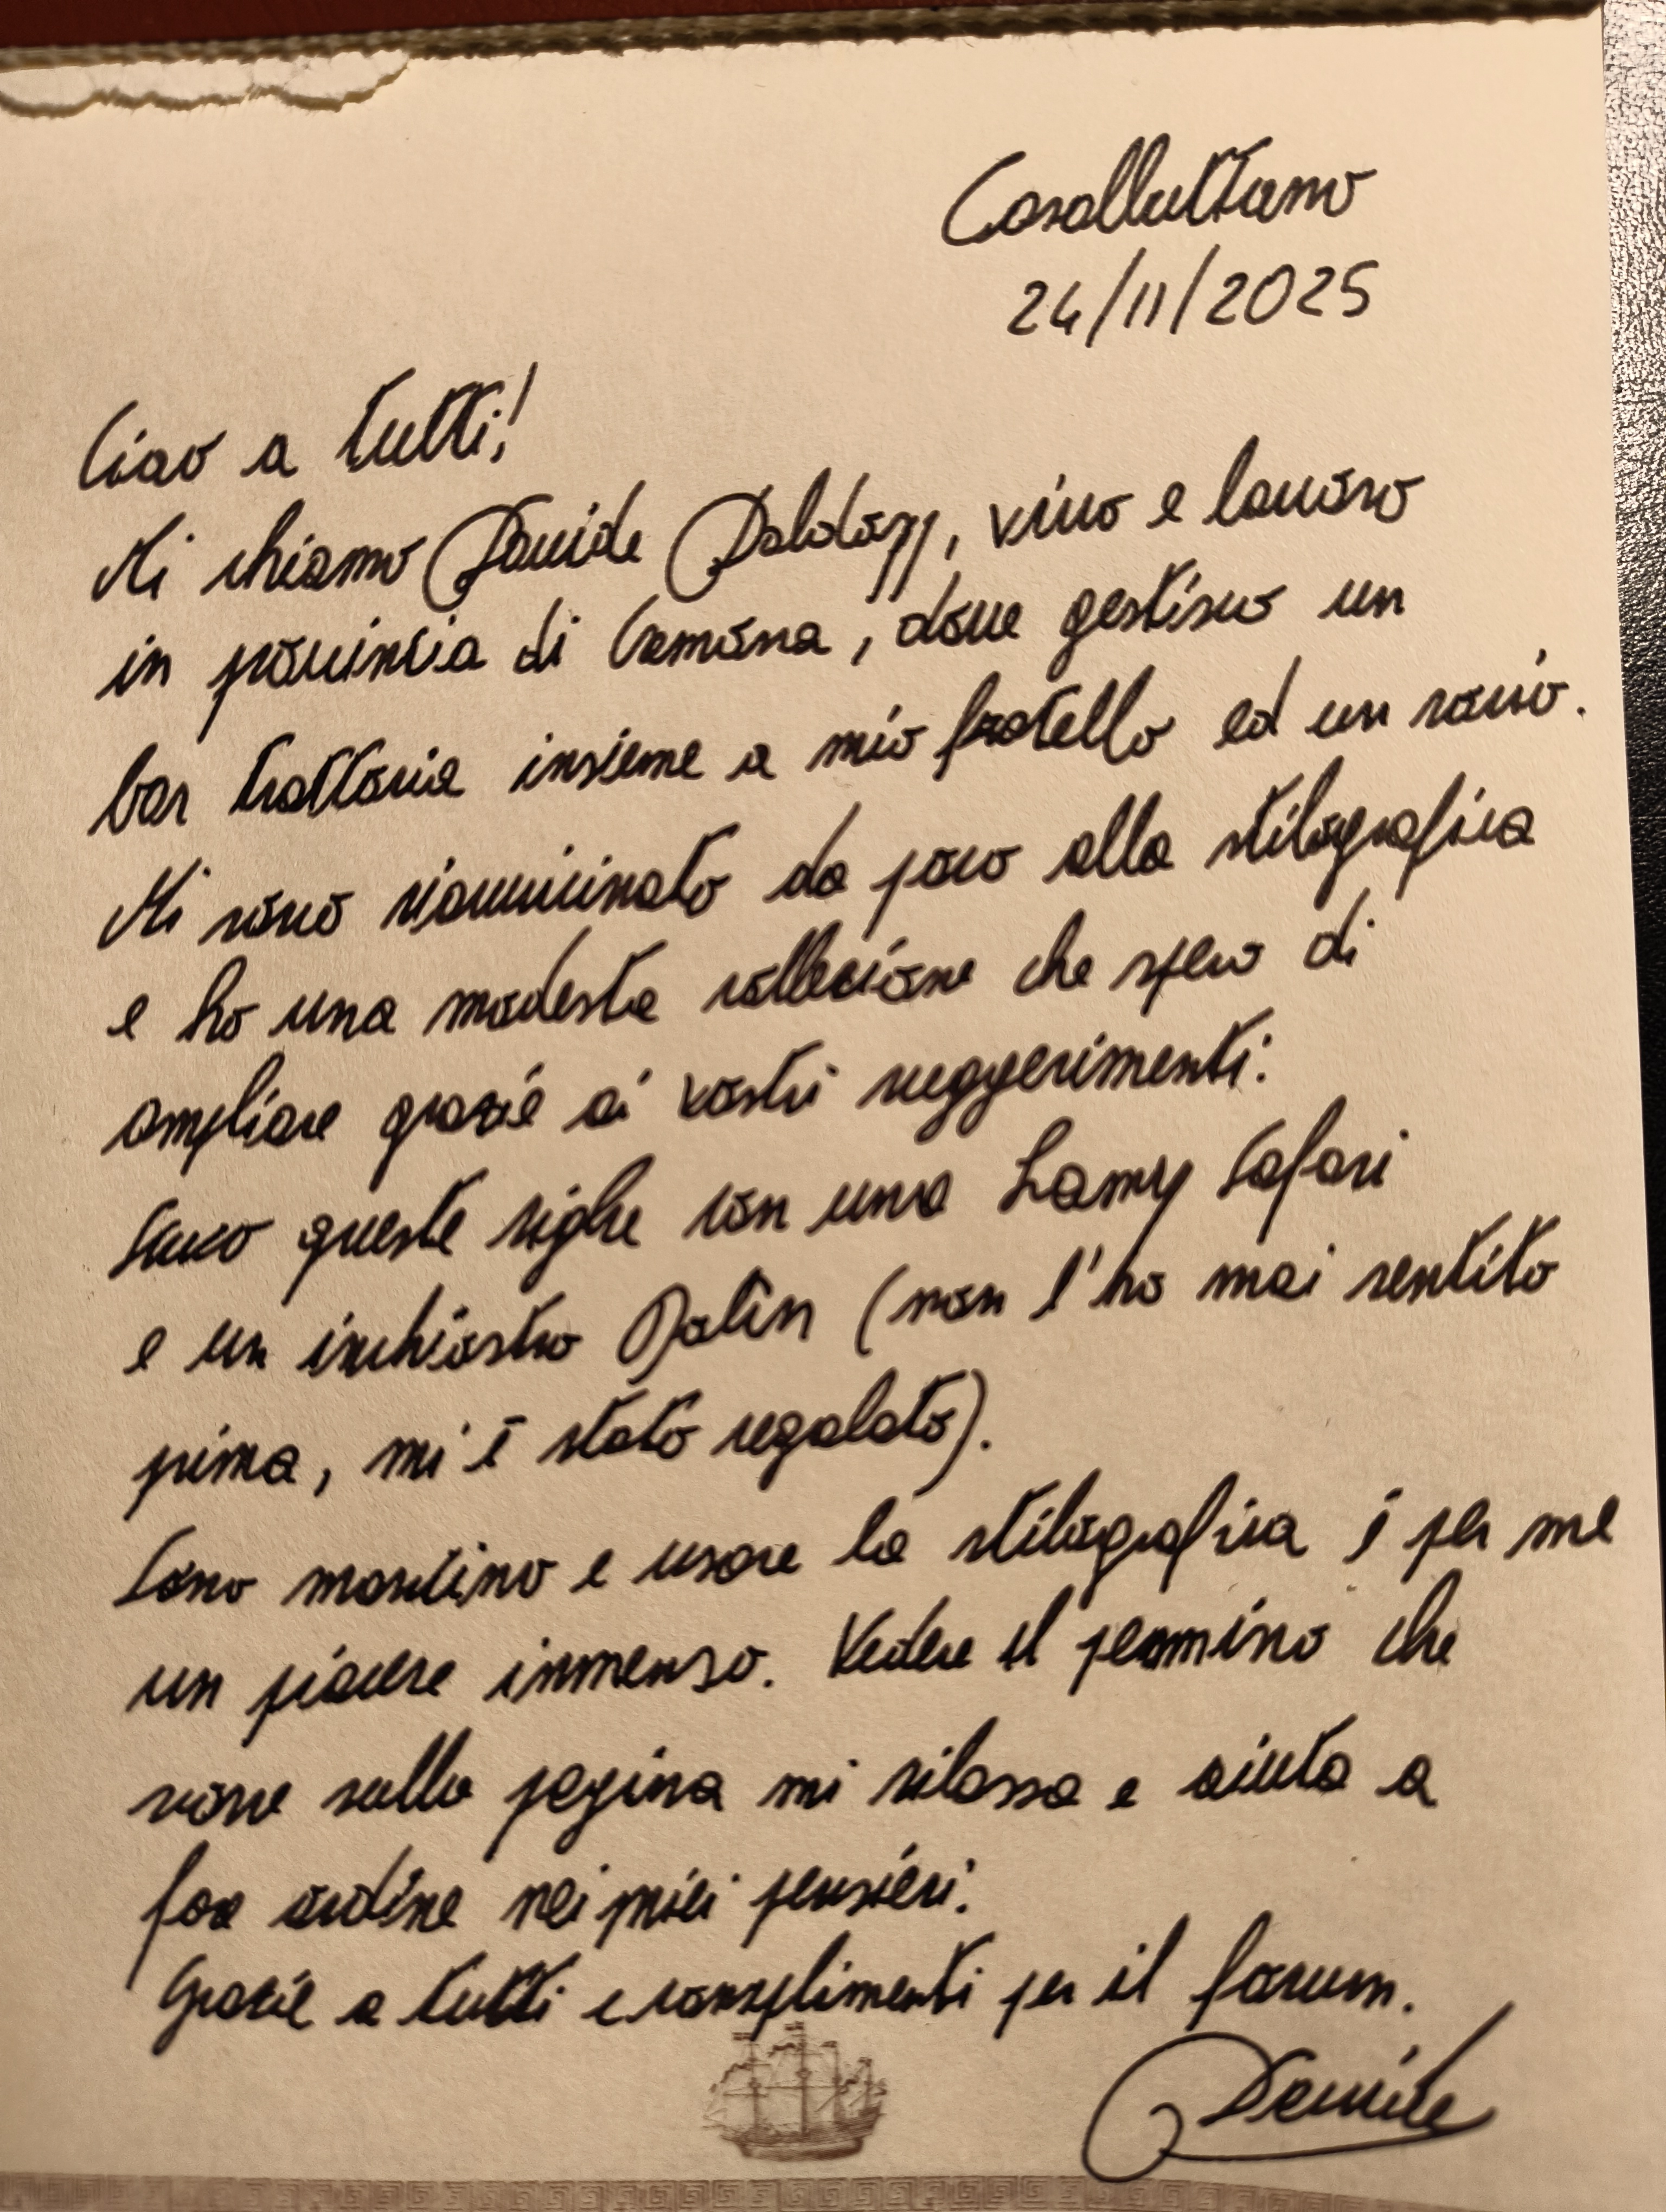 Casalbuttano
24/11/2025
Ciao a tutti!
Mi chiamo Davide, vivo e lavoro
in provincia di Cremona, dove gestisco un
bar trattoria insieme a mio fratello ed un socio.
Mi sono riavvicinato da poco alla stilografica
e ho una modesta collezione che spero di
ampliare grazie ai vostri suggerimenti.
Scrivo queste righe con una Lamy Safari
e un inchiostro (non l'ho mai sentito
prima, mi è stato regalato).
Sono mancino e usare la stilografica è per me
un piacere immenso. Vedere il pennino che
scorre sulla pagina mi rilassa e aiuta a
far ordine nei miei pensieri.
Grazie a tutti e complimenti per il forum.
Davide